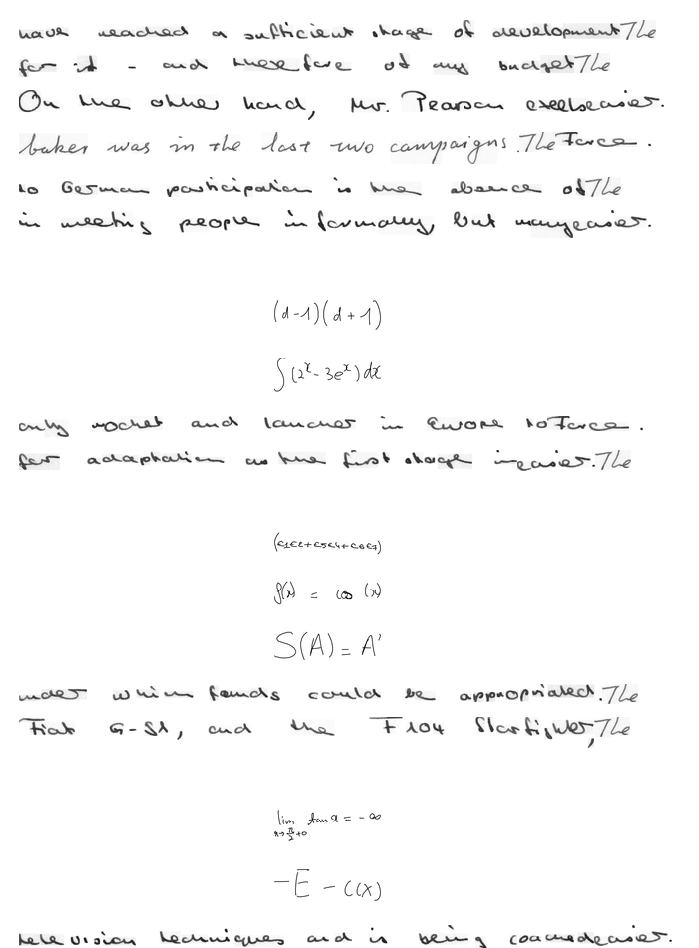 have reached a sufficient stage of development The
for it - and therefore of my budget The
On the other hand, Mr. Pearson excels easier.
baker was in the last two campaigns. The Force.
to German participation is the absence of The
in meeting people informally, but many easier.
(d-1)(d+1)
∫(2^x - 3e^x)dx
only rocket and launcher in Europe to Force.
for adaptation as the first stage in easier. The
(c1c2+c5c4+c6c7)
f(x) = cos (x)
S(A) = A'
under which funds could be appropriated. The
Fiat G-91, and the F104 Starfighter, The
lim x→π/2+0 tan x = -∞
-E - C(X)
television techniques and is being coached easier.